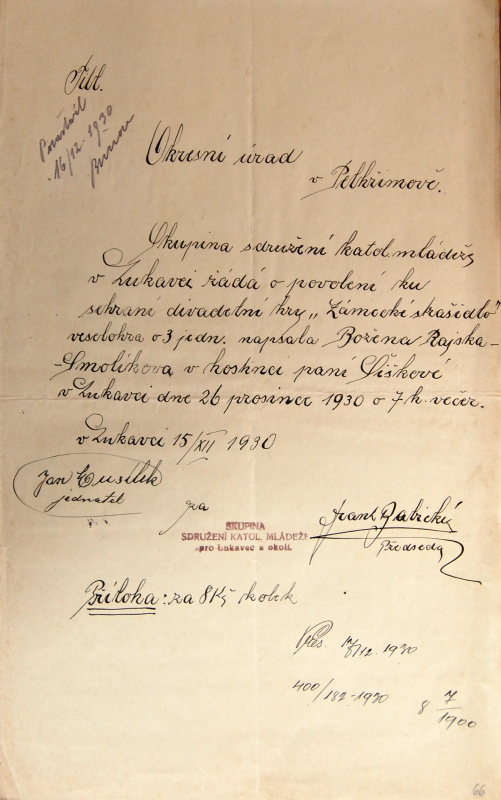 Tit.
16/12 1930
Okresní úřad
v Pelhřimově.
Skupina sdružení katol. mládeže
v Lukavci žádá o povolení ku
sehraní divadelní hry „Zámecké strašidlo"
veselohra o 3 jedn. napsala Božena Rajska-
-Smolíkova v hostinci paní Šiškové
v Lukavci dne 26 prosince 1930 o 7 h. večer.
v Lukavci 15/XII 1930
Jan
jednatel
za
SKUPINA
SDRUŽENÍ KATOL. MLÁDEŽE
pro Lukavec a okolí.
Frant. Zabický
Předseda
Příloha: za 8 Kč kolek
Pres. 17/12. 1930
400/182-1930
8 7/1900
66